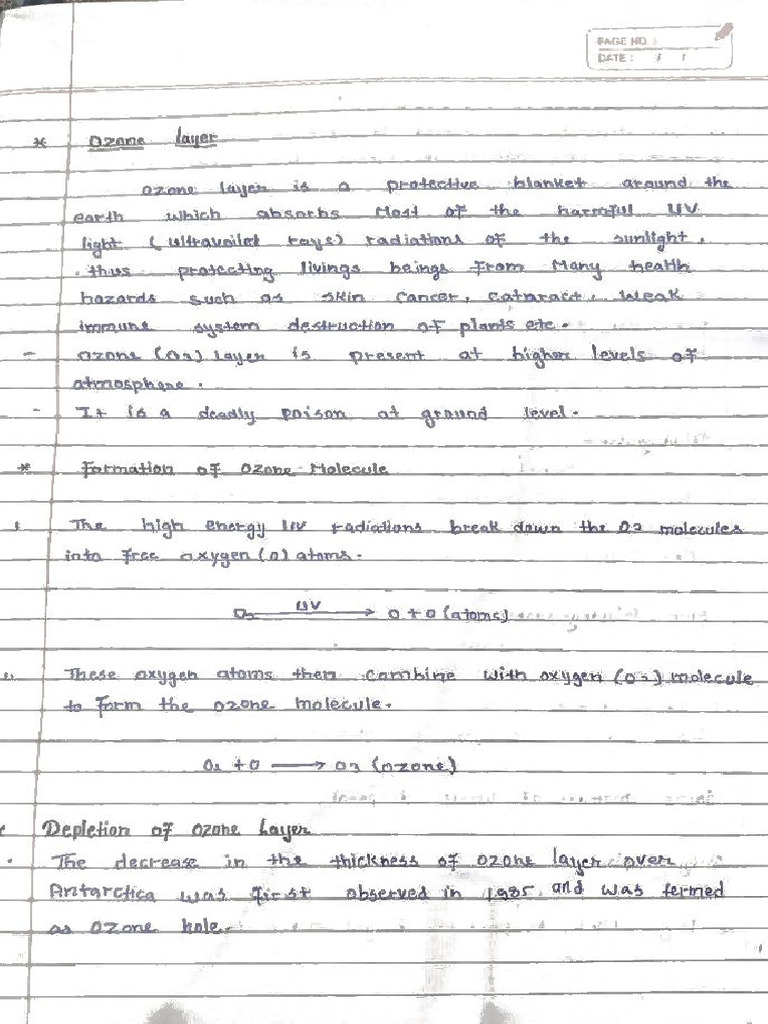 PAGE NO.
DATE : / /
* Ozone layer
ozone layer is a protective blanket around the
earth which absorbs Most of the harmful UV
light (ultravoilet rays) radiations of the sunlight,
thus protecting livings beings from Many health
hazards such as skin cancer, cataract, weak
immune system destruction of plants etc.
- ozone (O3) layer is present at higher levels of
atmosphere.
- It is a deadly poison at ground level.
* Formation of Ozone Molecule
The high energy UV radiations break down the O2 molecules
into free oxygen (O) atoms.
O2 —UV→ O + O (atoms)
These oxygen atoms then combine with oxygen (O2) molecule
to form the ozone molecule.
O2 + O → O3 (ozone)
Depletion of Ozone Layer
The decrease in the thickness of ozone layer over
Antarctica was first observed in 1985 and was termed
as Ozone hole.